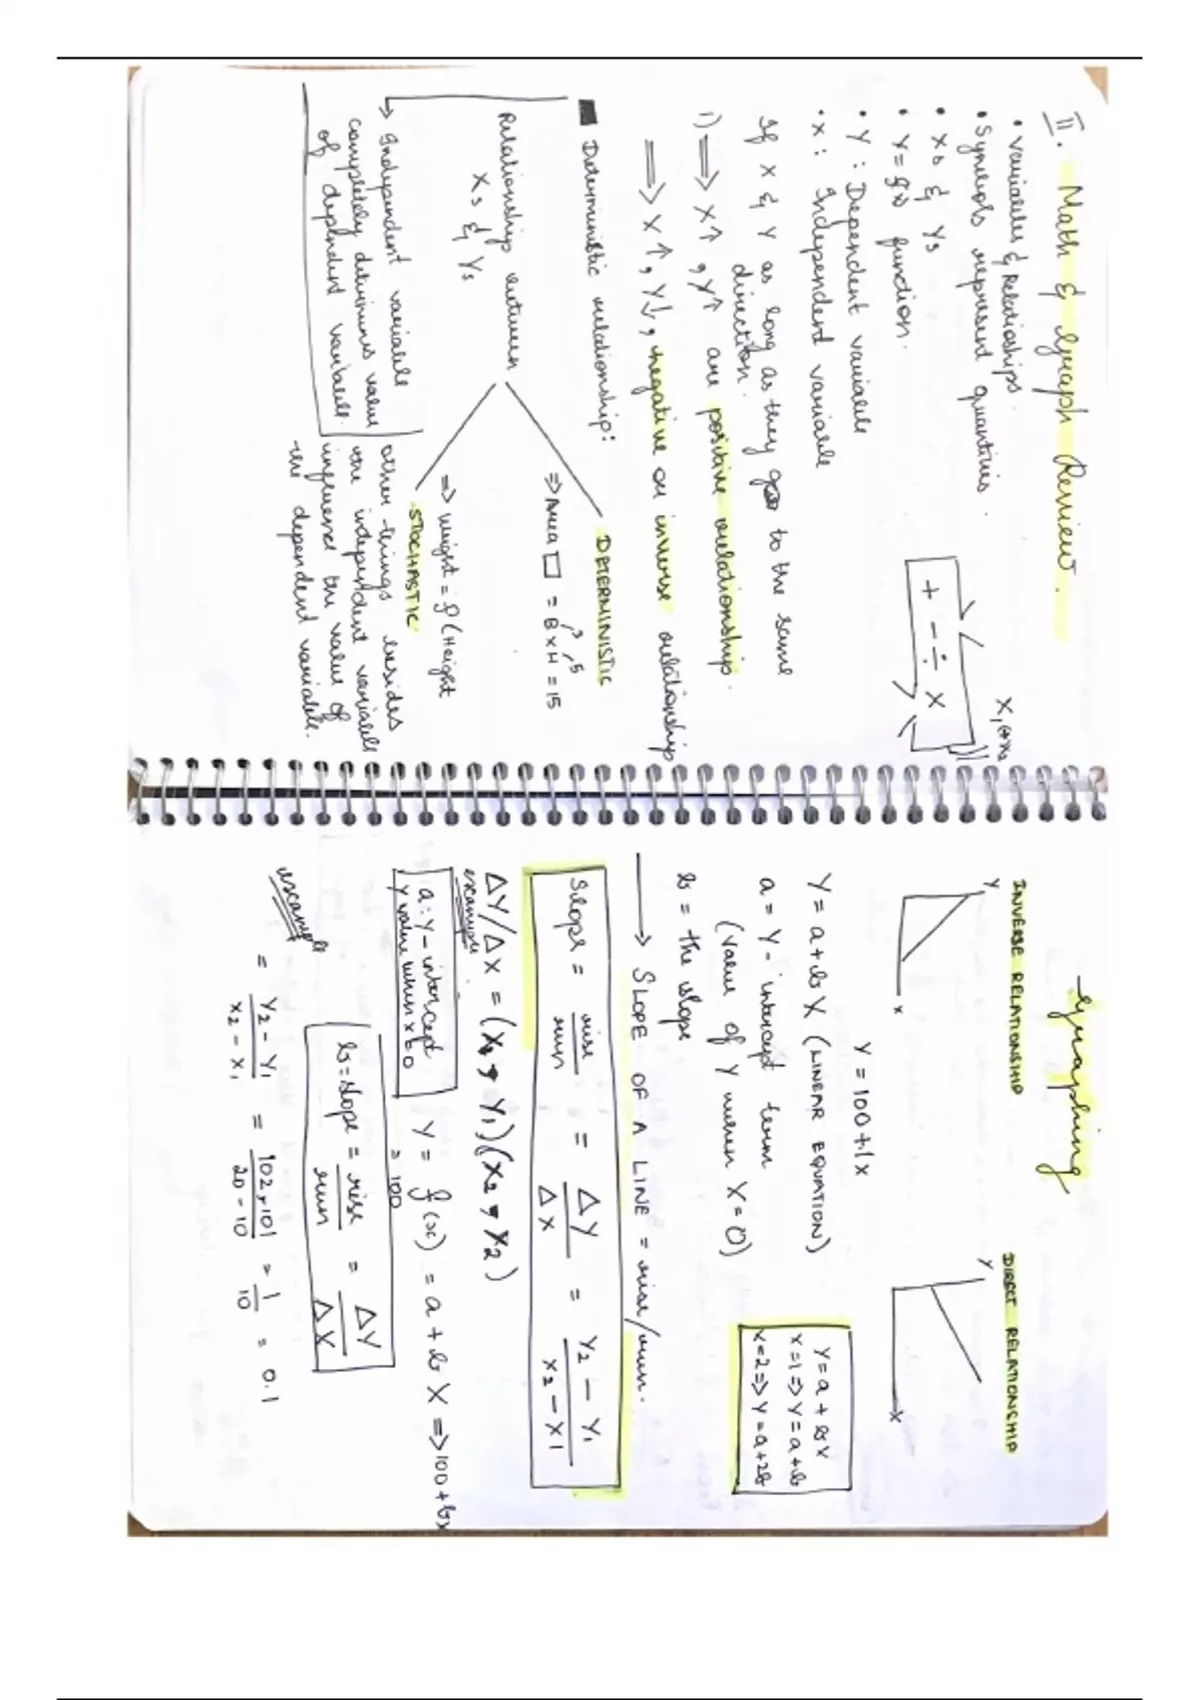 II. Math & Graph Review.
• Variables & Relatioships.
• Symbols represent quantities.
X, (+ x₂
+ - ÷ x
• Xs & Ys
• Y = f(x) function.
• Y : Dependent variable
• X : Independent variable
If X & Y as long as they go to the same
direction.
1) ⟹ X↑, Y↑ are positive relationship.
⟹ X↑, Y↓, negative or inverse relationship
■ Deterministic relationship:
DETERMINISTIC
⇒ Area □ = B x H = 15
3 5
Relationship between
Xs & Ys
⇒ Weight = f (Height
STOCHASTIC.
→ Independent variable
completely determines value
of dependent variable.
other things besides
the independent variable
influence the value of
the dependent variable.
Graphing
INVERSE RELATIONSHIP
DIRECT RELATIONSHIP
Y
X
Y
X
Y = 100 + .1x
Y = a + bX (LINEAR EQUATION)
a = Y - intercept term
(Value of Y when X = 0)
b = the slope
Y = a + bX
X=1 => Y = a+b
X=2 => Y = a+2b
→ SLOPE OF A LINE = rise/run.
Slope = rise/run = ΔY/ΔX = Y₂ - Y₁/X₂ - X1
ΔY/ΔX = (X₁, Y₁)(X₂, X₂)
example
a: Y-intercept
Y value when x=0
Y = f(x) = a + bX => 100 + bx
= 100
b = slope = rise/run = ΔY/ΔX
example
= Y₂ - Y₁/X₂ - X₁ = 102, 101/20 - 10 = 1/10 = 0.1